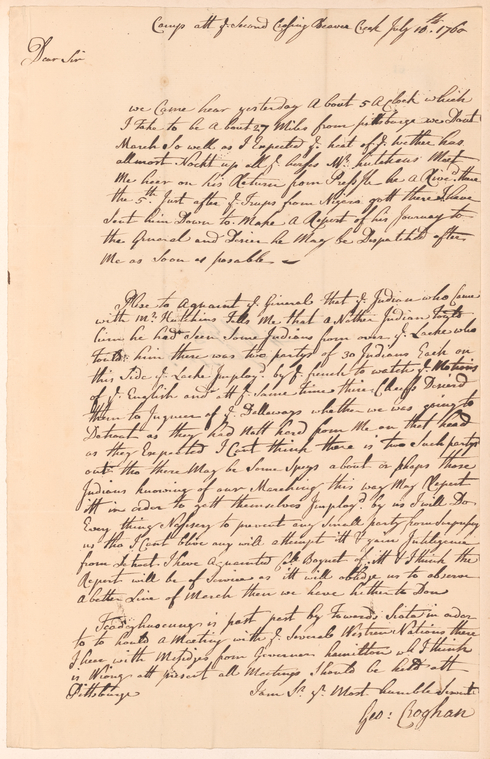 Camp att ye Second Crossing Beaver Creek July 10th. 1760
Dear Sir
we Came hear yesterday About 5 A Clock which
I Take to be About 27 Miles from pittsburgh we Dont
March So well as I Expected ye heat of ye wether has
allmost Nockt up all ye horses Mr. Hutchins Meet
Me hear on his Return from Presqle he Arived there
the 5th. Just after ye Troups from Niegra gott there I have
Sent him Down to Make A Report of his Journey to
the General and Desier he May be Dispatchd after
Me as Soon as posable
Plese to Aquaint ye Gineral That ye Indian who Came
with Mr. Hutchins Tells Me that a Nother Indian Tould
him he had Seen Some Indians from over ye Lacke who
Tould him there was two partys of 30 Indians Each on
this Side ye Lacke Imployd. by ye french to watch ye Motions
of ye English and att ye Same time three Cheiffs Desierd
them to Inquier of ye Dellaways whether we was going to
Detroit as they had Natt herd from Me on that head
as they Expected I Cant think there is two Such partys
out tho there May be Some Spys about or phaps those
Indians knowing of our Marching this way May Report
itt in order to gett themselves Imployd. by us I will Do
Every thing Nessesery to prevent any Small party from
us tho I Cant blive any will attempt itt
from Detroit. I have Aquainted Coll. Boquet of itt & I think the
Report will be of Service as itt will oblidge us to observe
a better Line of March then we have hitherto Don
is past past by Towards in order
to to hould a Meeting with ye Severale Westren Nations there
I hear with Mesidges from Governer hamilton wh. I think
is Wrong att present all Meetings Should be held att
Pittsburgh
I am Sr. yr. Most humble Servt.
Geo: Croghan